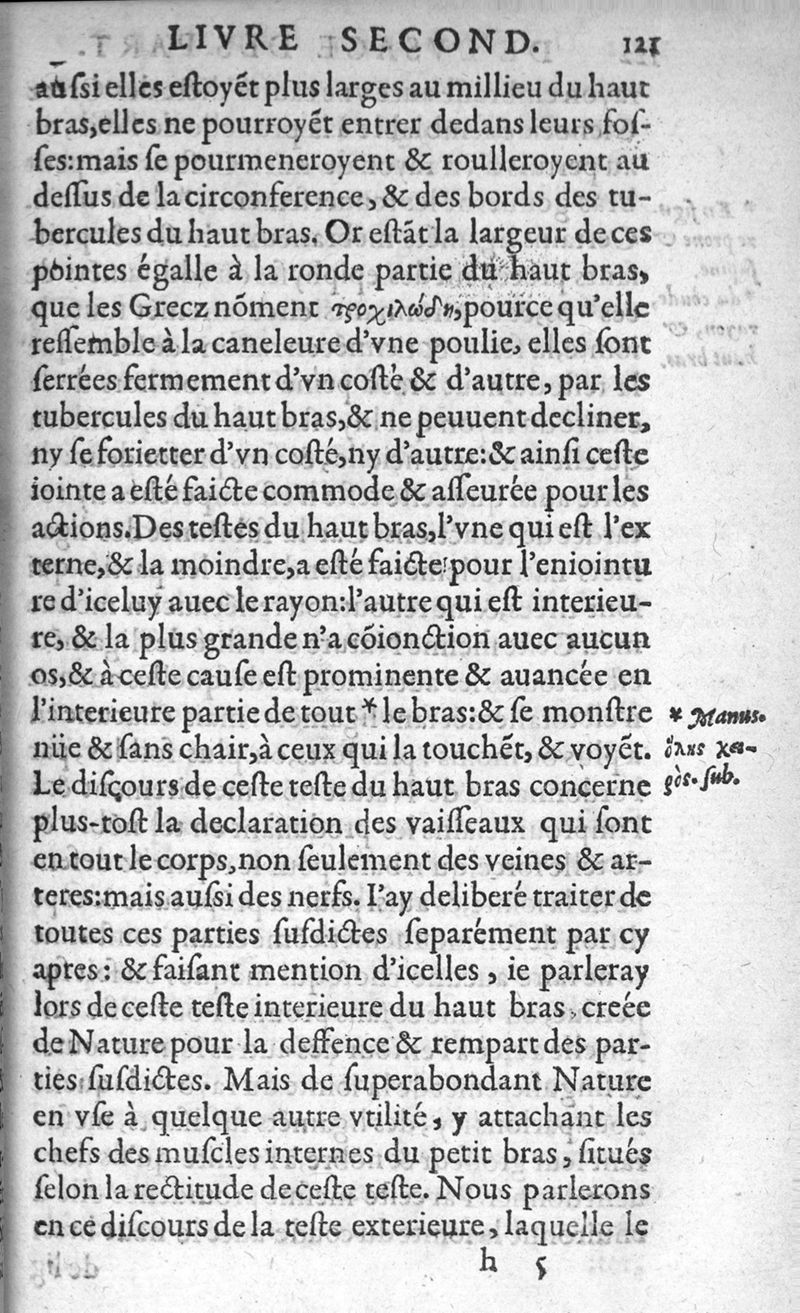 LIVRE SECOND. 121
auſsi elles eſtoyẽt plus larges au millieu du haut
bras, elles ne pourroyẽt entrer dedans leurs foſ-
ſes: mais ſe pourmeneroyent & roulleroyent au
deſſus de la circonference, & des bords des tu-
bercules du haut bras. Or eſtãt la largeur de ces
pointes égalle à la ronde partie du haut bras,
que les Grecz nõment τροχιλώδη, pource qu'elle
reſſemble à la caneleure d'vne poulie, elles ſont
ſerrées fermement d'vn coſté & d'autre, par les
tubercules du haut bras, & ne peuuent decliner,
ny ſe forietter d'vn coſté, ny d'autre: & ainſi ceſte
iointe a eſté faicte commode & aſſeurée pour les
actions. Des teſtes du haut bras, l'vne qui eſt l'ex
terne, & la moindre, a eſté faicte pour l'eniointu
re d'iceluy auec le rayon: l'autre qui eſt interieu-
re, & la plus grande n'a cõionction auec aucun
os, & à ceſte cauſe eſt prominente & auancée en
l'interieure partie de tout * le bras: & ſe monſtre
nüe & ſans chair, à ceux qui la touchẽt, & voyẽt.
Le diſcours de ceſte teſte du haut bras concerne
plus-toſt la declaration des vaiſſeaux qui ſont
en tout le corps, non ſeulement des veines & ar-
teres: mais auſsi des nerfs. I'ay deliberé traiter de
toutes ces parties ſuſdictes ſeparément par cy
apres: & faiſant mention d'icelles, ie parleray
lors de ceſte teſte interieure du haut bras, creée
de Nature pour la deffence & rempart des par-
ties ſuſdictes. Mais de ſuperabondant Nature
en vſe à quelque autre vtilité, y attachant les
chefs des muſcles internes du petit bras, ſitués
ſelon la rectitude de ceſte teſte. Nous parlerons
en ce diſcours de la teſte exterieure, laquelle le
h 5
* Manus.
ὅλης χει-
ρὸς. ſub.